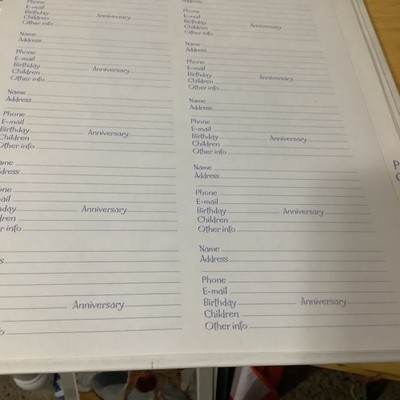 Phone
E-mail
Birthday Anniversary
Children
Other info
Name
Address
Phone
E-mail
Birthday Anniversary
Children
Other info
Name
Address
Phone
E-mail
Birthday Anniversary
Children
Other info
Name
Address
Phone
E-mail
Birthday Anniversary
Children
Other info
Anniversary
Address
Phone
E-mail
Birthday Anniversary
Children
Other info
Name
Address
Phone
E-mail
Birthday Anniversary
Children
Other info
Name
Address
Phone
E-mail
Birthday Anniversary
Children
Other info
Name
Address
Phone
E-mail
Birthday Anniversary
Children
Other info
Name
Address
Phone
E-mail
Birthday Anniversary
Children
Other info